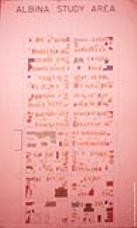 ALBINA STUDY AREA